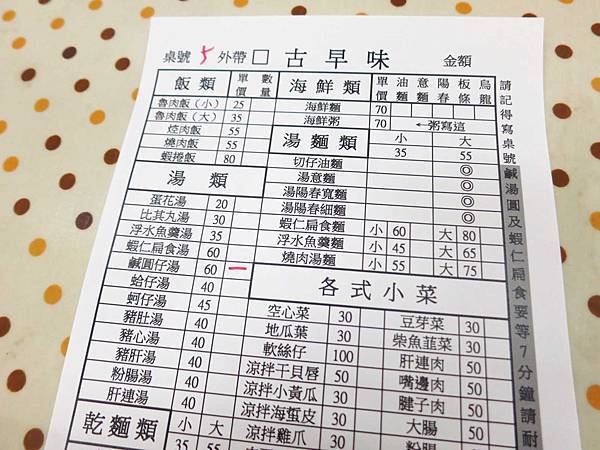 桌號 5 外帶 □ 古早味 金額
飯類 單價 數量
魯肉飯(小) 25
魯肉飯(大) 35
焢肉飯 55
燒肉飯 55
蝦捲飯 80
湯類
蛋花湯 20
比其丸湯 30
浮水魚羹湯 35
蝦仁扁食湯 60
鹹圓仔湯 60 一
蛤仔湯 40
蚵仔湯 45
豬肚湯 40
豬心湯 40
豬肝湯 40
粉腸湯 40
肝連湯 40
乾麵類 小 大
35 55
海鮮類 單價 油麵 意麵 陽春 板條 烏龍
海鮮麵 70
海鮮粥 70 ←粥寫這
湯麵類 小 大
35 55
切仔油麵 ◎
湯意麵 ◎
湯陽春寬麵 ◎
湯陽春細麵 ◎
蝦仁扁食麵 小 60 大 80
浮水魚羹麵 小 45 大 65
燒肉湯麵 小 55 大 75
各式小菜
空心菜 30 豆芽菜 30
地瓜葉 30 柴魚韮菜 30
軟絲仔 100 肝連肉 50
涼拌干貝唇 50 嘴邊肉 50
涼拌小黃瓜 30 腱子肉 50
涼拌海蜇皮 30 大腸 50
涼拌雞爪 30 粉腸 50
請記得寫桌號
鹹湯圓及蝦仁扁食要等7分鐘請耐